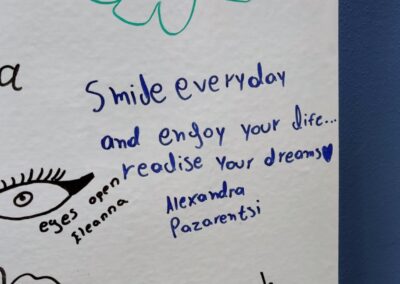 a
Smile everyday
and enjoy your life...
realise your dreams
Alexandra
Pazarentsi
eyes open
Eleanna